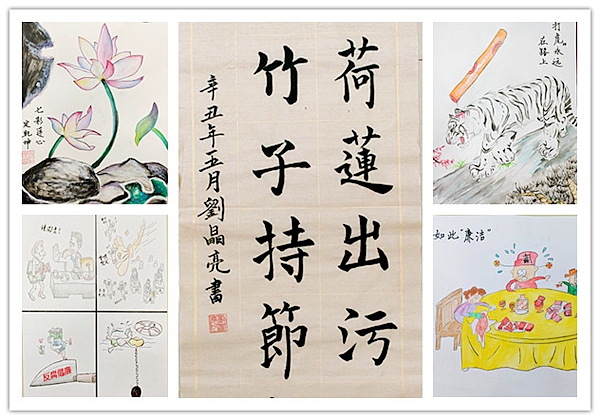 七彩莲心
定乾坤
荷蓮出污
竹子持節
辛丑年五月劉晶亮書
打虎”永远
在路上
反腐倡廉
如此“廉洁”